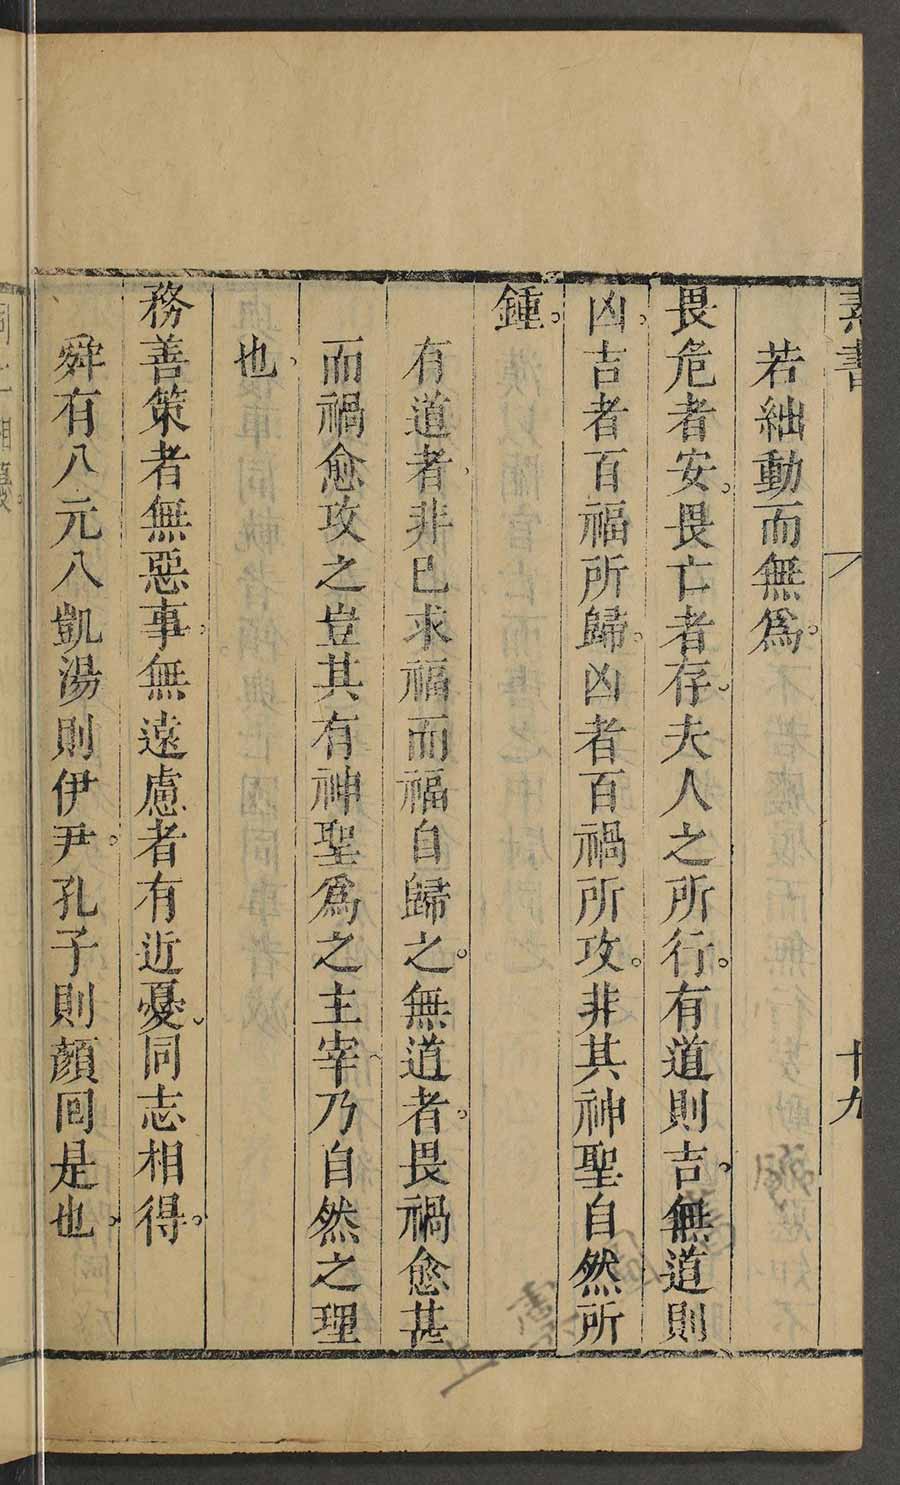 素書
十九
若絀動而無爲。
畏危者安。畏亡者存。夫人之所行。有道則吉。無道則
凶。吉者百福所歸。凶者百禍所攻。非其神聖自然所
鍾。
有道者非已求福而福自歸之。無道者。畏禍愈甚
而禍愈攻之豈其有神聖爲之主宰乃自然之理
也。
務善策者無惡事。無遠慮者有近憂。同志相得。
舜有八元八凱湯則伊尹。孔子則顔回是也。